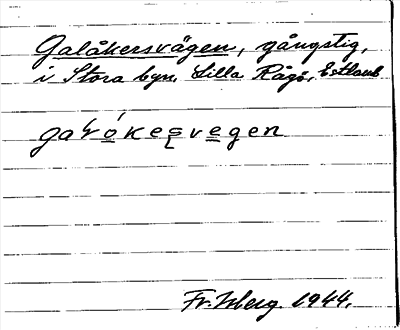 Galåkersvägen, gångstig,
i Stora byn, Lilla Rågö, Estland
galókesvegen
Fr. Isberg 1944.